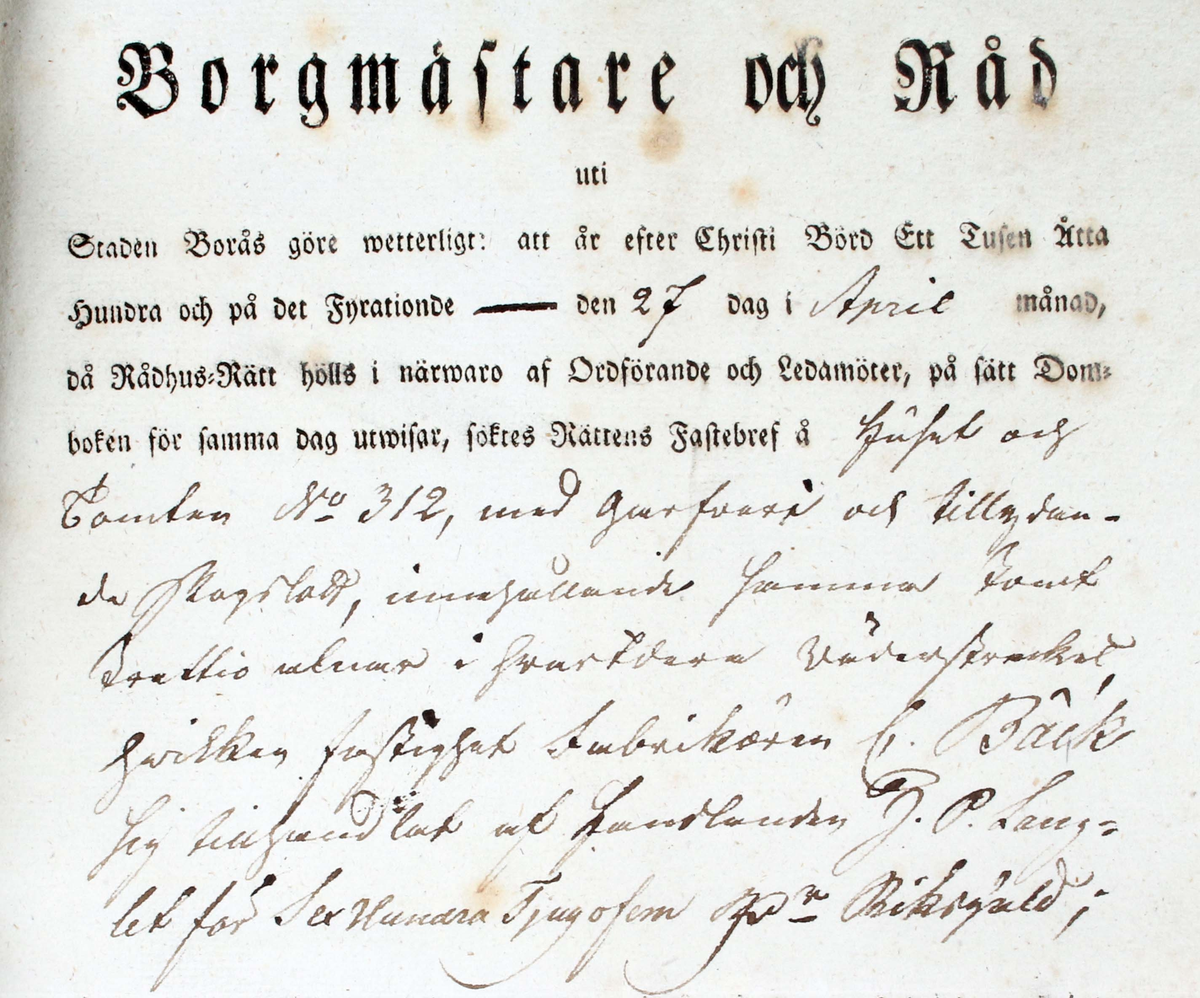 Borgmästare och Råd
uti
Staden Borås göre wetterligt: att år efter Christi Börd Ett Tusen Åtta
Hundra och på det Fyrationde — den 27 dag i April månad,
då Rådhus-Rätt hölls i närwaro af Ordförande och Ledamöter, på sätt Dom-
boken för samma dag utwisar, söktes Rättens Fastebref å Huset och
Tomten No 312, med Garfveri och tillydan-
de Skogslott, innehållande samma Tomt
Trettio alnar i hvartdera Väderstrecket,
hvilken fastighet Fabrikören C. Bäck
sig tillhandlat af Handlanden J. P. Lang-
let för Sex Hundra Tjugofem Rdr Riksgäld;